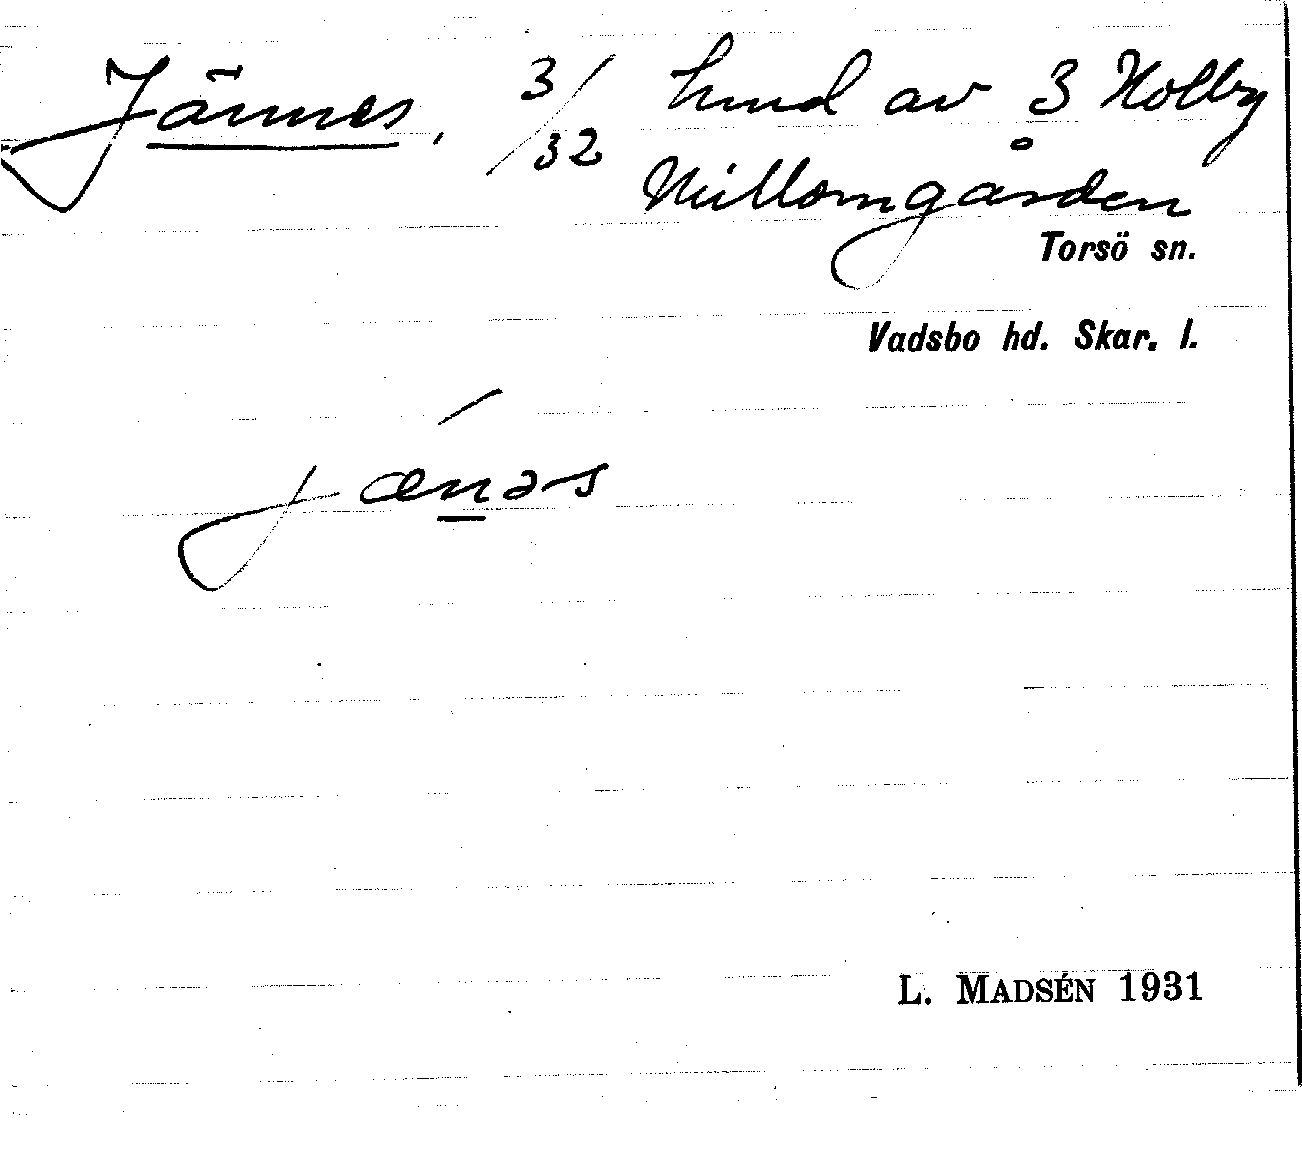 Jännes, 3/32 hmd av 3 Holby
Millomgården
Torsö sn.
Vadsbo hd. Skar. l.
jænəs
L. MADSÉN 1931